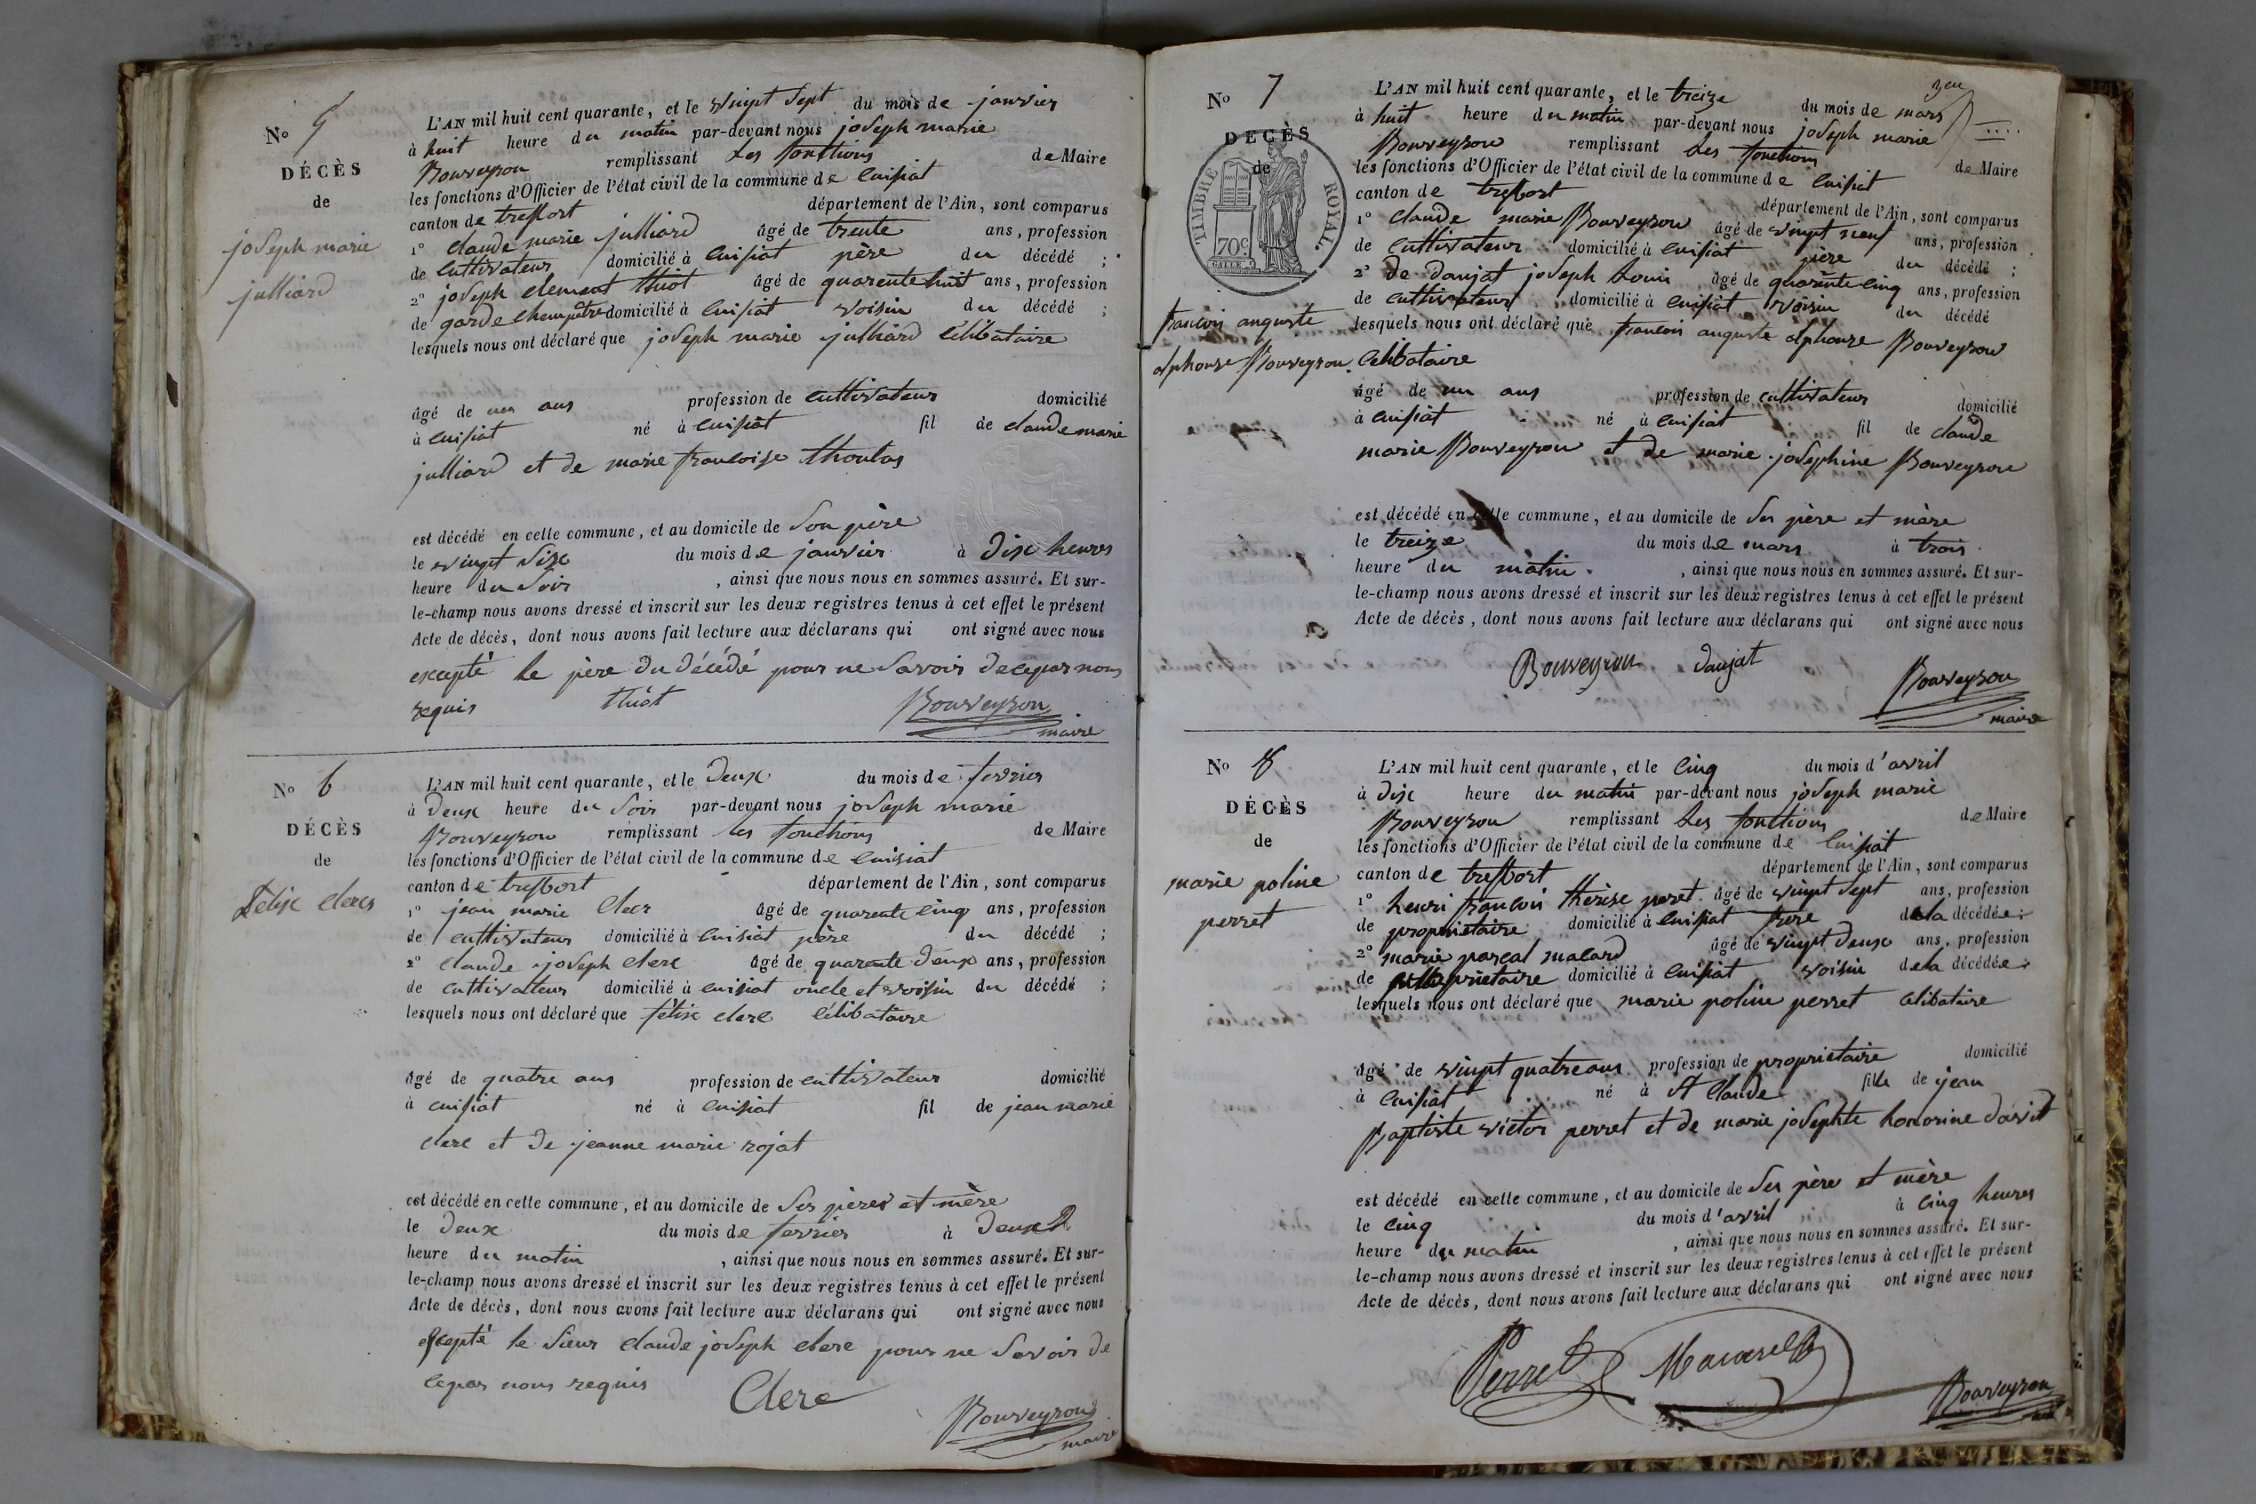 No 5
DÉCÈS
de
joseph marie
julliard
L'AN mil huit cent quarante, et le vingt sept du mois de janvier
à huit heure du matin par-devant nous joseph marie
Bouveyron remplissant les fonctions de Maire
les fonctions d'Officier de l'état civil de la commune de Cuisiat
canton de treffort département de l'Ain, sont comparus
1° claude marie julliard âgé de trente ans, profession
de Cultivateur domicilié à Cuisiat père du décédé ;
2° joseph clement thiot âgé de quarente huit ans, profession
de garde champêtre domicilié à Cuisiat voisin du décédé ;
lesquels nous ont déclaré que joseph marie julliard célibataire
âgé de un ans profession de cultivateur domicilié
à Cuisiat né à Cuisiat fil de claude marie
julliard et de marie francoise
est décédé en cette commune, et au domicile de son père
le vingt six du mois de janvier à dix heures
heure du soir , ainsi que nous nous en sommes assuré. Et sur-
le-champ nous avons dressé et inscrit sur les deux registres tenus à cet effet le présent
Acte de décès, dont nous avons fait lecture aux déclarans qui ont signé avec nous
excepté le père du décédé pour ne savoir de ce par nous
requis thiot Bouveyron
maire
No 6
DÉCÈS
de
Félix clerc
L'AN mil huit cent quarante, et le deux du mois de fevrier
à deux heure du soir par-devant nous joseph marie
Bouveyron remplissant les fonctions de Maire
les fonctions d'Officier de l'état civil de la commune de Cuisiat
canton de treffort département de l'Ain, sont comparus
1° jean marie Clerc âgé de quarente cinq ans, profession
de cultivateur domicilié à Cuisiat père du décédé ;
2° claude joseph clerc âgé de quarente deux ans, profession
de cultivateur domicilié à cuisiat oncle et voisin du décédé ;
lesquels nous ont déclaré que félix clerc célibataire
âgé de quatre ans profession de cultivateur domicilié
à cuisiat né à Cuisiat fil de jean marie
clerc et de jeanne marie rojat
est décédé en cette commune, et au domicile de ses pères et mère
le deux du mois de fevrier à deux
heure du matin , ainsi que nous nous en sommes assuré. Et sur-
le-champ nous avons dressé et inscrit sur les deux registres tenus à cet effet le présent
Acte de décès, dont nous avons fait lecture aux déclarans qui ont signé avec nous
excepté le sieur claude joseph clerc pour ne savoir de
ce par nous requis Clerc
Bouveyron
maire
No 7
DÉCÈS
de
TIMBRE ROYAL
70c
francois auguste
alphonse Bouveyron
L'AN mil huit cent quarante, et le treize du mois de mars
à huit heure du matin par-devant nous joseph marie
Bouveyron remplissant les fonctions de Maire
les fonctions d'Officier de l'état civil de la commune de Cuisiat
canton de treffort département de l'Ain, sont comparus
1° claude marie Bouveyron âgé de vingt neuf ans, profession
de Cultivateur domicilié à Cuisiat père du décédé ;
2° de daujat joseph Louis âgé de quarente cinq ans, profession
de cultivateur domicilié à Cuisiat voisin du décédé
lesquels nous ont déclaré que francois auguste alphonse Bouveyron
célibataire
âgé de un ans profession de cultivateur domicilié
à Cuisiat né à Cuisiat fil de claude
marie Bouveyron et de marie josephine Bouveyron
est décédé en cette commune, et au domicile de ses père et mère
le treize du mois de mars à trois
heure du matin , ainsi que nous nous en sommes assuré. Et sur-
le-champ nous avons dressé et inscrit sur les deux registres tenus à cet effet le présent
Acte de décès, dont nous avons fait lecture aux déclarans qui ont signé avec nous
Bouveyron daujat
Bouveyron
maire
No 8
DÉCÈS
de
marie poline
perret
L'AN mil huit cent quarante, et le Cinq du mois d'avril
à dix heure du matin par-devant nous joseph marie
Bouveyron remplissant les fonctions de Maire
les fonctions d'Officier de l'état civil de la commune de Cuisiat
canton de treffort département de l'Ain, sont comparus
1° henri francois thérèse peret âgé de vingt sept ans, profession
de propriétaire domicilié à Cuisiat frere de la décédée ;
2° marie pascal macard âgé de vingt deux ans, profession
de propriétaire domicilié à Cuisiat voisin de la décédée ;
lesquels nous ont déclaré que marie poline perret célibataire
âgé de vingt quatre ans profession de propriétaire domicilié
à Cuisiat né à St Claude fille de jean
Baptiste victor perret et de marie josephte honorine david
est décédé en cette commune, et au domicile de ses père et mère
le cinq du mois d'avril à cinq heures
heure du matin , ainsi que nous nous en sommes assuré. Et sur-
le-champ nous avons dressé et inscrit sur les deux registres tenus à cet effet le présent
Acte de décès, dont nous avons fait lecture aux déclarans qui ont signé avec nous
Perret
Bouveyron